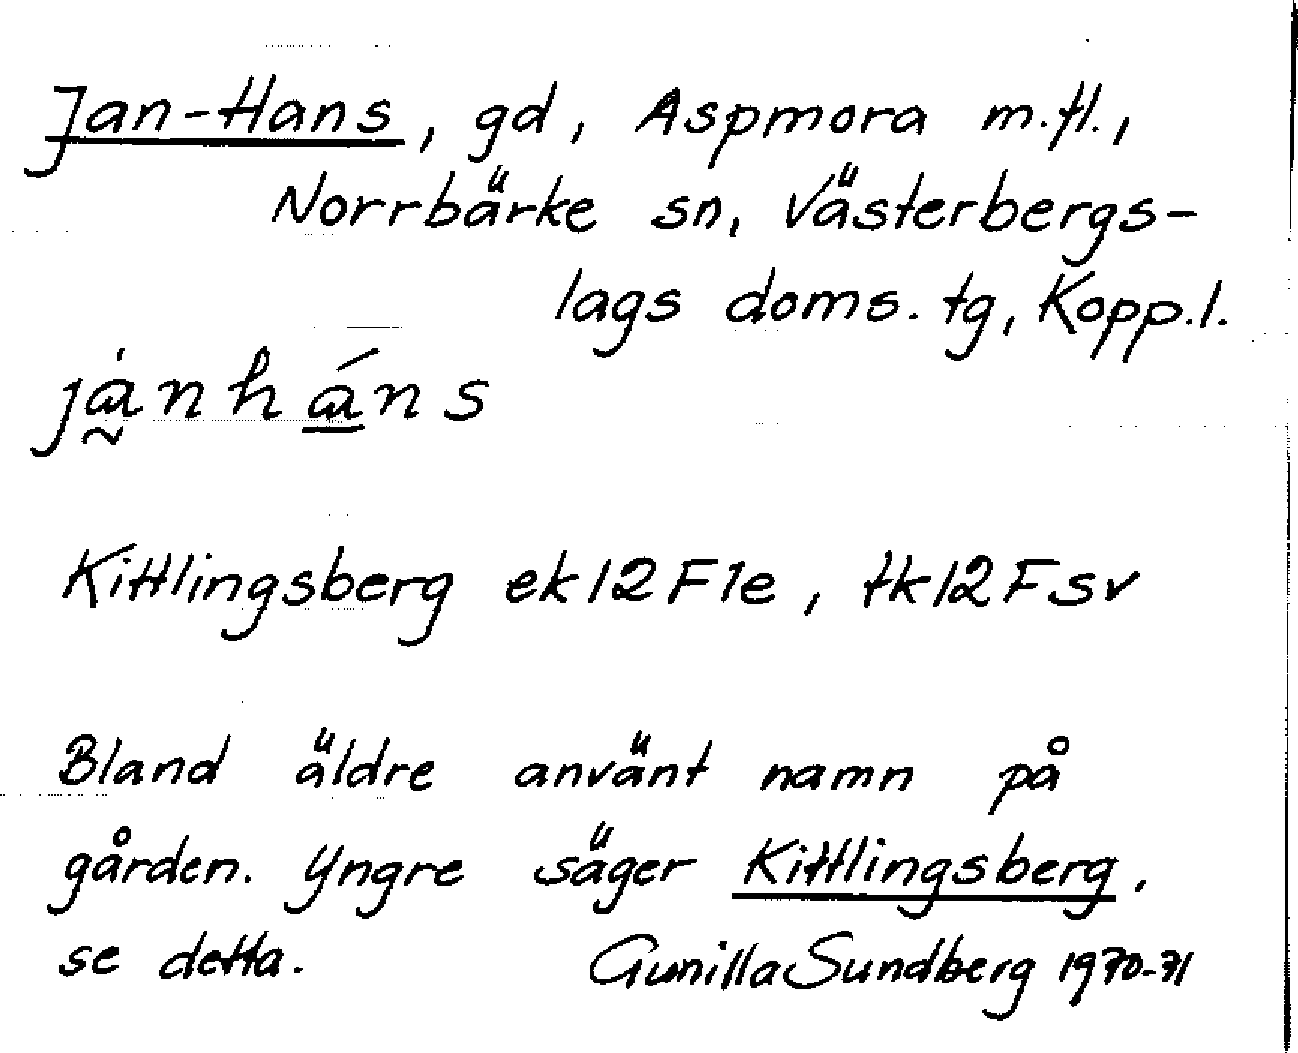 Jan-Hans, gd, Aspmora m.fl.,
Norrbärke sn, Västerbergs-
lags doms. tg, Kopp.l.
jànháns
Kittlingsberg ek12F1e, tk12Fsv
Bland äldre använt namn på
gården. Yngre säger Kittlingsberg,
se detta. Gunilla Sundberg 1970-71